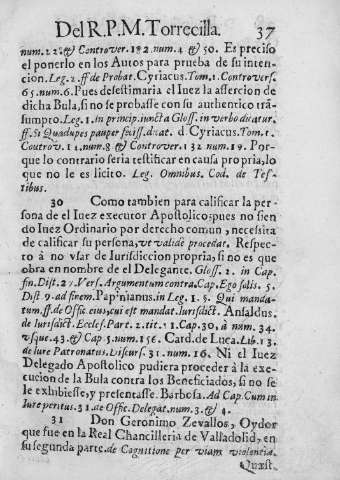 Del R. P. M. Torrecilla. 37
num. 22. & Controver. 192. num. 4 & 50. Es preciso
el ponerlo en los Autos para prueba de su inten-
cion. Leg. 2. ff de Probat. Cyriacus. Tom. 1. Controvers.
65. num. 6. Pues desestimaria el Iuez la assercion de
dicha Bula, si no se probasse con su authentico trã-
sumpto. Leg. 1. in princip. iuncta Gloss. in verbo dicatur.
ff. Si Quadupes pauper feciss. dicat. d Cyriacus. Tom. 1.
Coutrov. 11. num. 8 & Controver. 132 num. 19. Por-
que lo contrario seria testificar en causa propria, lo
que no le es licito. Leg. Omnibus. Cod. de Tes-
tibus.
30 Como tambien para calificar la per-
sona de el Iuez executor Apostolico; pues no sien
do Iuez Ordinario por derecho comun, necessita
de calificar su persona, ve validè procedat. Respec-
to à no vsar de Iurisdiccion propria, si no es que
obra en nombre de el Delegante. Gloss. 2. in Cap.
fin. Dist. 27. Vers. Argumentum contra. Cap. Ego solis. 5.
Dist 9. ad finem. Papinianus. in Leg. 1. §. Qui manda-
tum. ff. de Offic eius, cui est mandat. Iurisdict. Ansaldus.
de Iurisdict. Eccles. Part. 2. tit. 11. Cap. 30, à num. 34.
vsque. 43. & Cap 5. num. 156. Card. de Luca. Lib. 13.
de Iure Patronatus. Discurs. 31. num. 16. Ni el Iuez
Delegado Apostolico pudiera proceder à la exe-
cucion de la Bula contra los Beneficiados, si no se
le exhibiesse, y presentasse. Barbosa. Ad Cap. Cum in
Iure peritus. 31. de Offic. Delegat. num. 3. & 4.
31 Don Geronimo Zevallos, Oydor
que fue en la Real Chancilleria de Valladolid, en
su segunda parte. de Cognitione per viam violentia.
Quæst.